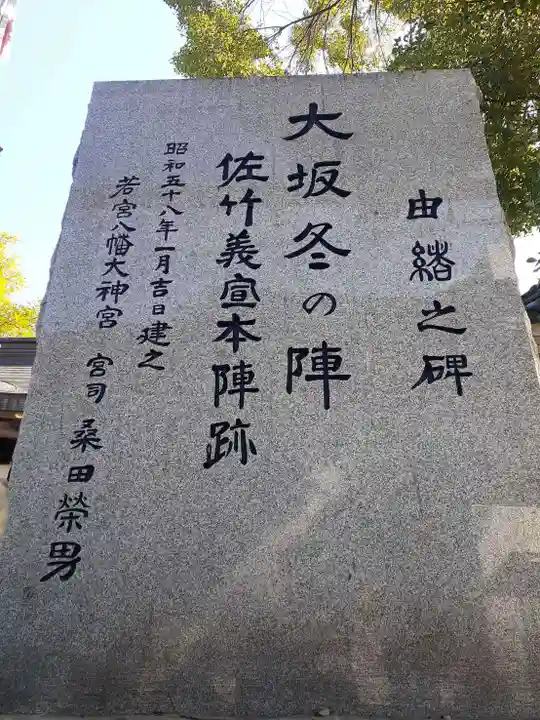 由緒之碑
大坂冬の陣
佐竹義宣本陣跡
昭和五十八年一月吉日建之
若宮八幡大神宮 宮司 桑田榮男